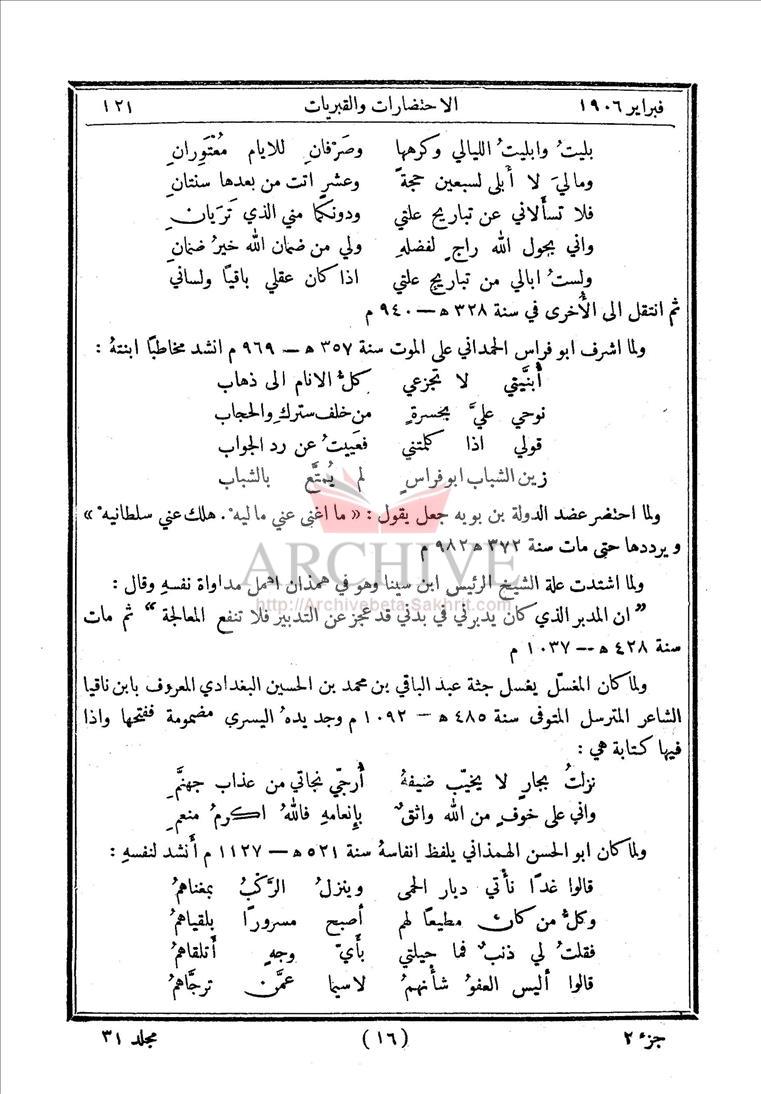 فبراير ١٩٠٦ الاحتضارات والقبريات ١٢١
بليتُ وابليتُ الليالي وكرهها وصَرْفانِ للايام مُعْتَوِرانِ
وماليَ لا أبلى لسبعين حجةً وعشرٍ اتت من بعدها سنتانِ
فلا تسأَلاني عن تباريح علتي ودونكما مني الذي تَرَيانِ
واني بجول الله راجٍ لفضلهِ ولي من ضمان الله خيرُ ضمانِ
ولستُ ابالي من تباريح علتي اذا كان عقلي باقيًا ولساني
ثم انتقل الى الأُخرى في سنة ٣٢٨ ھ — ٩٤٠ م
ولما اشرف ابو فراس الحمداني على الموت سنة ٣٥٧ ھ — ٩٦٩ م انشد مخاطبًا ابنتهُ :
أَبنيَّتي لا تجزعي كلُّ الانام الى ذهاب
نوحي عليَّ بحسرةٍ من خلف ستركِ والحجاب
قولي اذا كلمتني فعَييتُ عن رد الجواب
زين الشباب ابو فراسٍ لم يُمتَّع بالشباب
ولما احتضر عضد الدولة بن بويه جعل يقول : « ما اغنى عني ماليهْ . هلك عني سلطانيهْ »
ويرددها حتى مات سنة ٣٧٢ ھ ٩٨٢ م
ARCHIVE
ولما اشتدت علة الشيخ الرئيس ابن سينا وهو في همذان اهمل مداواة نفسهِ وقال :
http://Archivebeta.Sakhrit.com
” ان المدبر الذي كان يدبرني في بدني قد عجز عن التدبير فلا تنفع المعالجة “ ثم مات
سنة ٤٢٨ ھ — ١٠٣٧ م
ولما كان المغسّل يغسل جثة عبد الباقي بن محمد بن الحسين البغدادي المعروف بابن ناقيا
الشاعر المترسل المتوفى سنة ٤٨٥ ھ — ١٠٩٢ م وجد يدهُ اليسري مضمومة ففتحها واذا
فيها كتابة هي :
نزلتُ بجارٍ لا يخيّب ضيفهُ أُرجّي نجاتي من عذاب جهنَّمِ
واني على خوفٍ من الله واثقٌ بإنعامهِ فاللهُ اكرمُ منعمِ
ولما كان ابو الحسن الهمذاني يلفظ انفاسهُ سنة ٥٢١ ھ — ١١٢٧ م أَنشد لنفسهِ :
قالوا غدًا نأتي ديار الحمى وينزلُ الرَّكبُ بمغناهمُ
وكلُّ من كان مطيعًا لهم أصبح مسرورًا بلقياهمُ
فقلتُ لي ذنبٌ فما حيلتي بأَيّ وجهٍ أَتلقاهمُ
قالوا أليس العفوُ شأنهمُ لاسيما عمَّن ترجَّاهمُ
جزء ٢ (١٦) مجلد ٣١